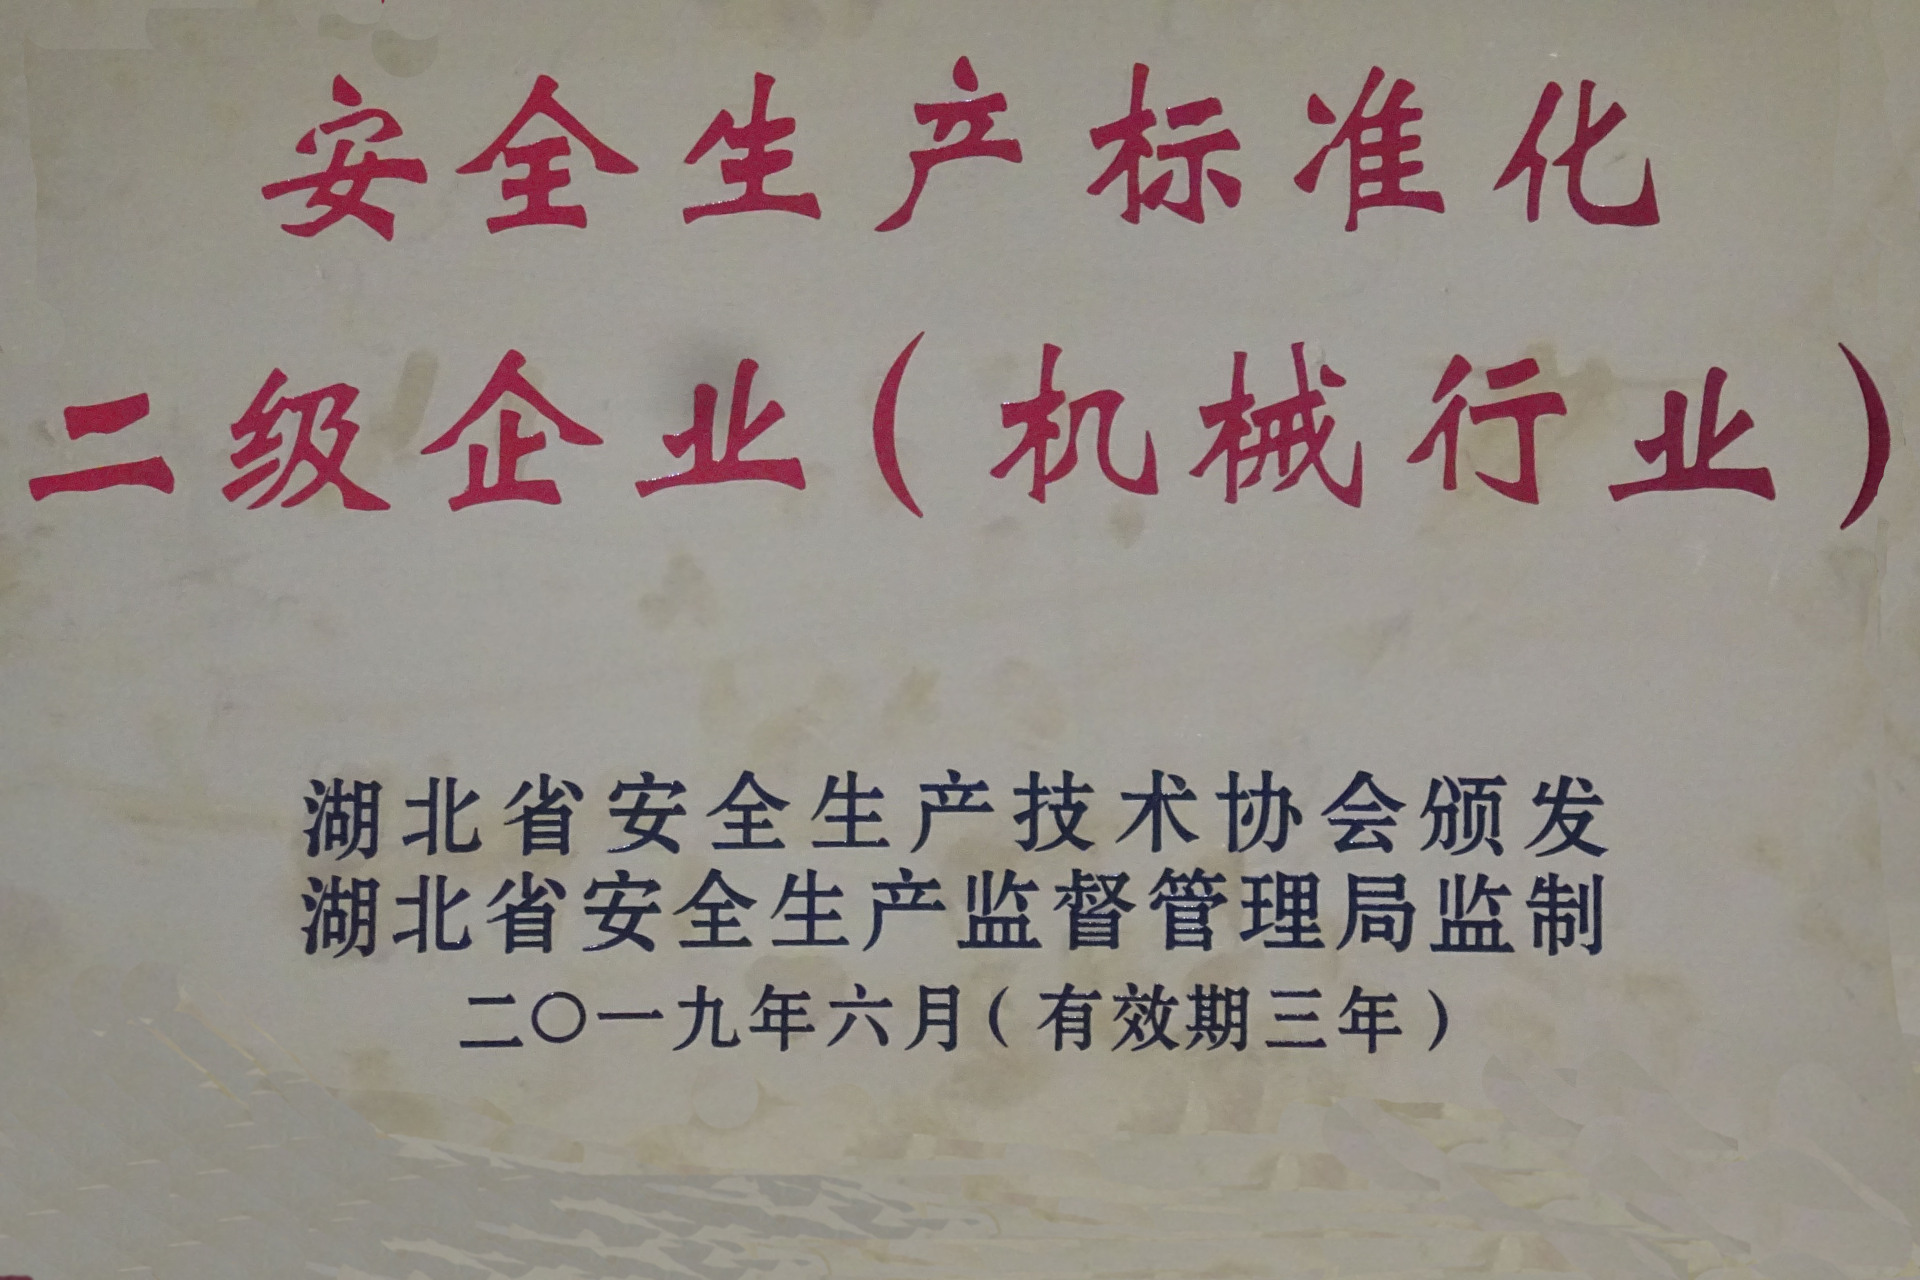 安全生产标准化
二级企业(机械行业)
湖北省安全生产技术协会颁发
湖北省安全生产监督管理局监制
二〇一九年六月(有效期三年)